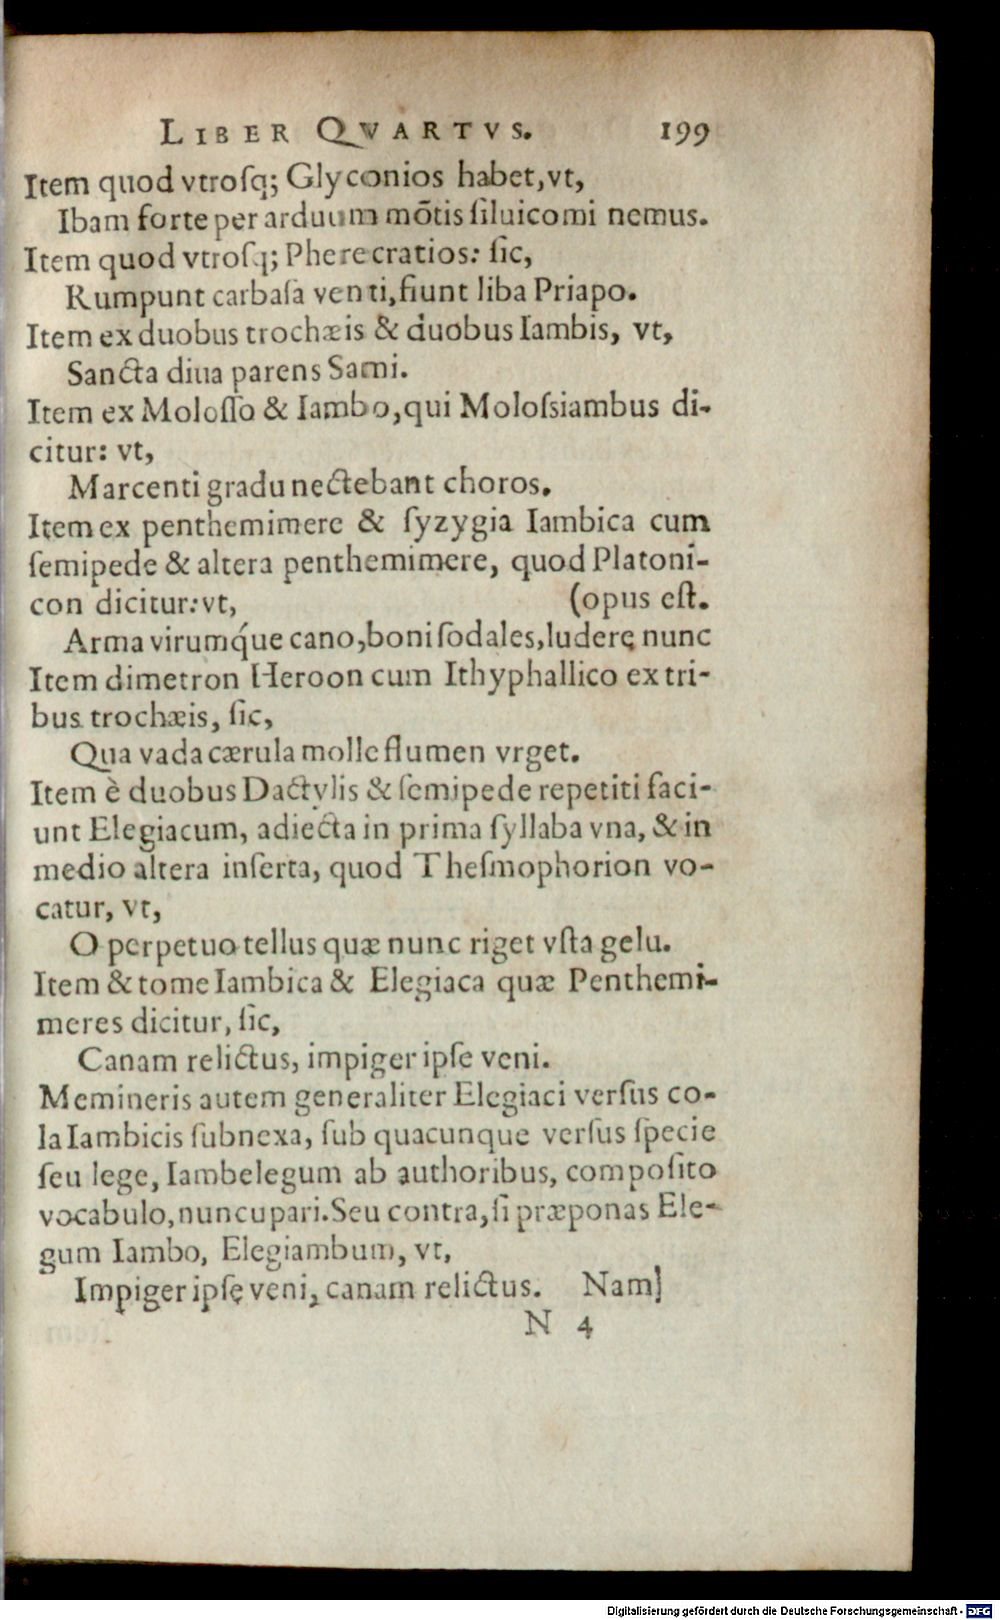 LIBER QVARTVS. 199
Item quod vtroſq; Glyconios habet, vt,
Ibam forte per arduum mõtis ſiluicomi nemus.
Item quod vtroſq; Pherecratios: ſic,
Rumpunt carbaſa venti, fiunt liba Priapo.
Item ex duobus trochæis & duobus Iambis, vt,
Sancta diua parens Sami.
Item ex Moloſſo & Iambo, qui Moloſsiambus di-
citur: vt,
Marcenti gradu nectebant choros.
Item ex penthemimere & ſyzygia Iambica cum
ſemipede & altera penthemimere, quod Platoni-
con dicitur: vt, (opus eſt.
Arma virumq́ue cano, boni ſodales, ludere nunc
Item dimetron Heroon cum Ithyphallico ex tri-
bus trochæis, ſic,
Qua vada cærula molle flumen vrget.
Item è duobus Dactylis & ſemipede repetiti faci-
unt Elegiacum, adiecta in prima ſyllaba vna, & in
medio altera inſerta, quod Theſmophorion vo-
catur, vt,
O perpetuo tellus quæ nunc riget vſta gelu.
Item & tome Iambica & Elegiaca quæ Penthemi-
meres dicitur, ſic,
Canam relictus, impiger ipſe veni.
Memineris autem generaliter Elegiaci verſus co-
la Iambicis ſubnexa, ſub quacunque verſus ſpecie
ſeu lege, Iambelegum ab authoribus, compoſito
vocabulo, nuncupari. Seu contra, ſi præponas Ele-
gum Iambo, Elegiambum, vt,
Impiger ipſe veni, canam relictus. Nam]
N 4
Digitalisierung gefördert durch die Deutsche Forschungsgemeinschaft - DFG